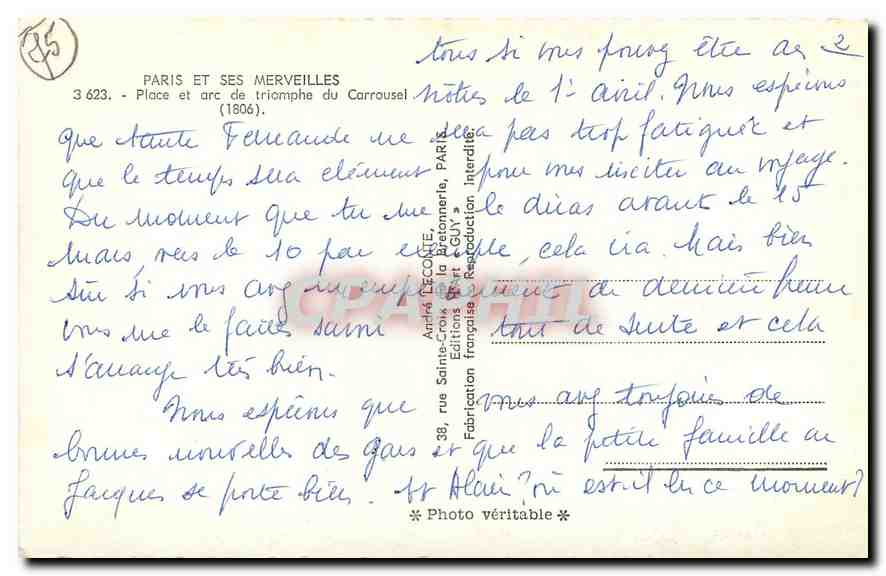 75
2
PARIS ET SES MERVEILLES
3 623. - Place et arc de triomphe du Carrousel
(1806).
tous si vous pouvez être des
nôtres le 1er avril. Nous espérons
que tante Fernande ne sera pas trop fatiguée et
que le temps sera clément pour vous inciter au voyage.
Du moment que tu me le diras avant le 15
Mars, vers le 10 par exemple, cela ira. Mais bien
sûr si vous avez un empêchement de dernière heure
vous me le faites savoir tout de suite et cela
s'arrange très bien.
Nous espérons que vous avez toujours de
bonnes nouvelles des gars et que la petite famille de
Jacques se porte bien. Et Alain? où est-il en ce moment?
André LECONTE,
38, rue Sainte-Croix de la Bretonnerie, PARIS
Editions d'Art « GUY »
Fabrication française - Reproduction Interdite.
CPAPHIL
* Photo véritable *